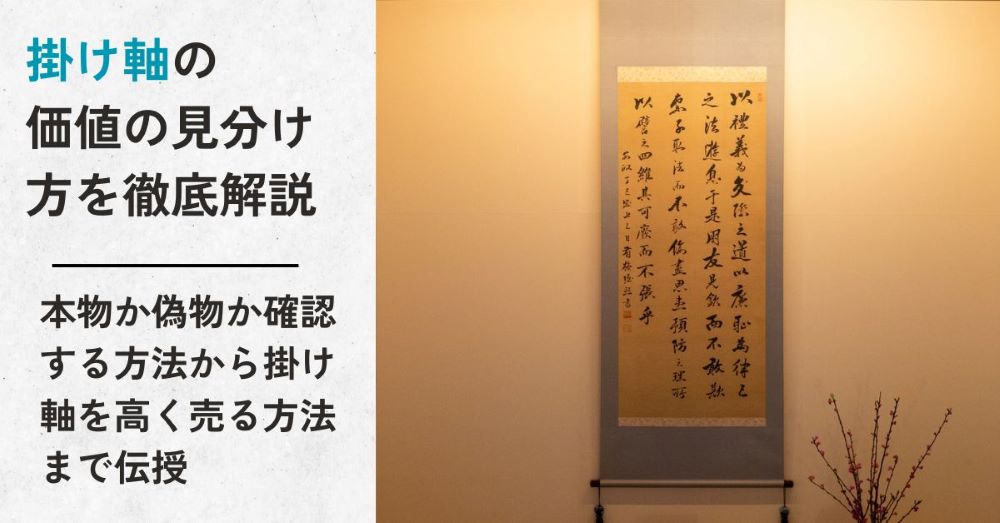 掛け軸の
価値の見分け
方を徹底解説
本物か偽物か確認
する方法から掛け
軸を高く売る方法
まで伝授
以禮義為交際之道以廉恥為律己
之法遊息于是朋友見欽而不敢欺
妻子取法而不敢偽盡思患預防之理所
以譬之四維其可廢而不張乎